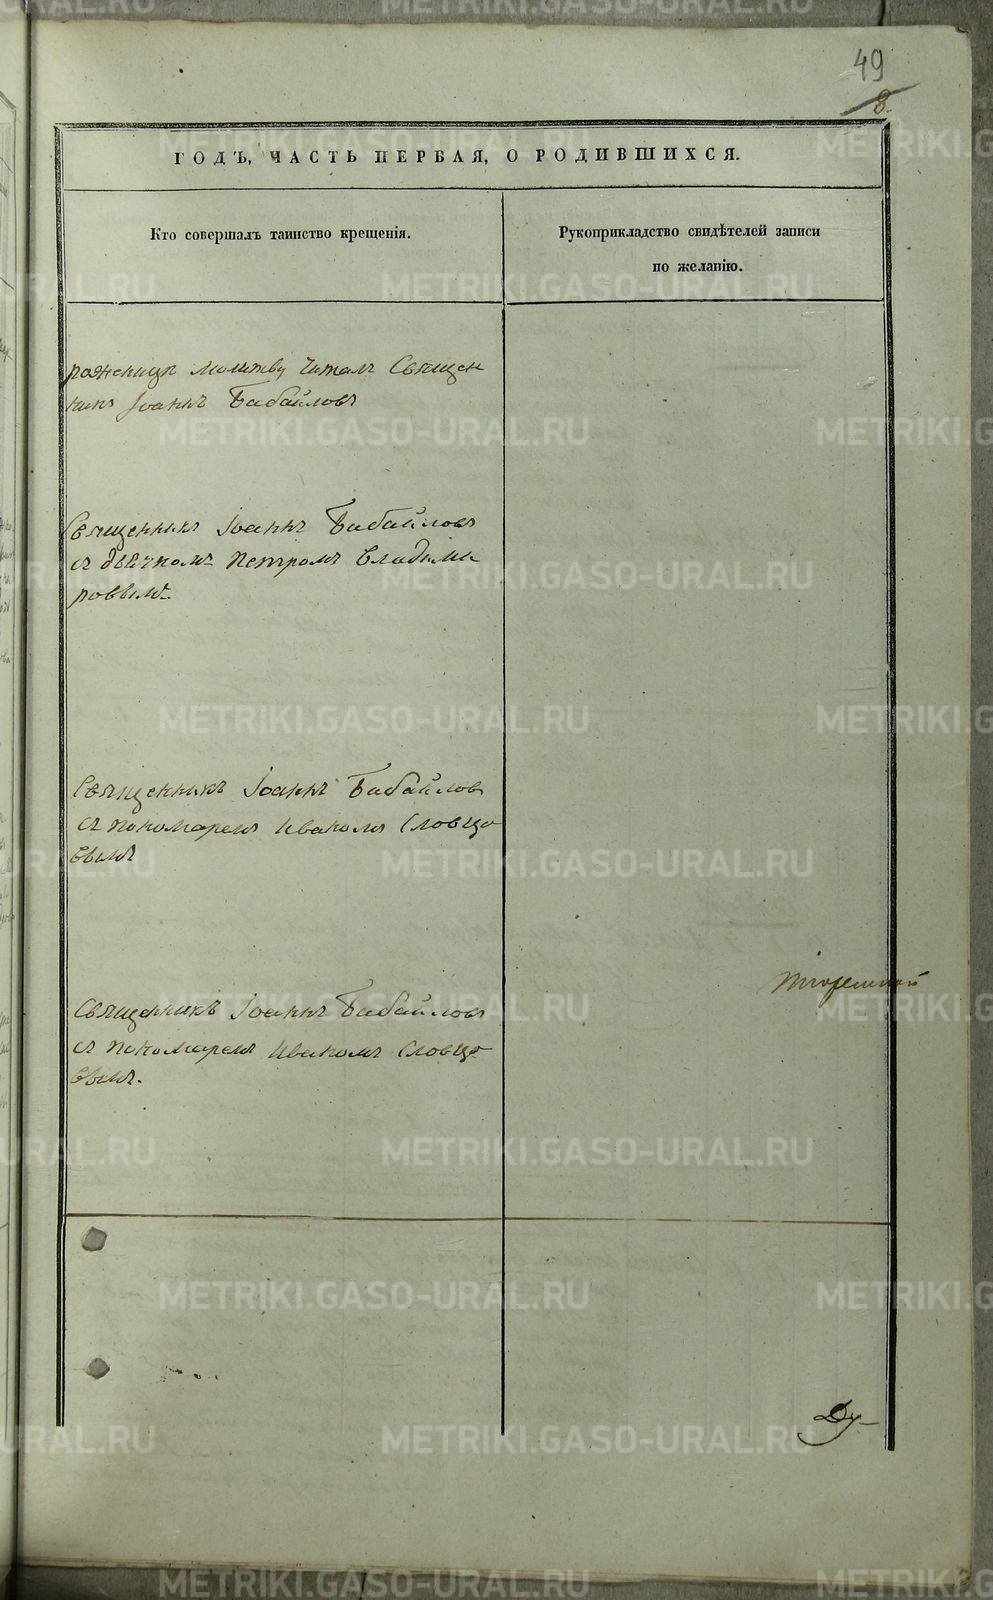 49
8.
ГОДЪ, ЧАСТЬ ПЕРВАЯ, О РОДИВШИХСЯ.
Кто совершалъ таинство крещенія.
Рукоприкладство свидѣтелей записи
по желанію.
роженицѣ молитву читалъ Священ
никъ Іоаннъ Бабайловъ
Священникъ Іоаннъ Бабайловъ
съ дьячкомъ Петромъ Владими
ровымъ.
Священникъ Іоаннъ Бабайловъ
съ пономаремъ Иваномъ Словцо
вымъ
Священникъ Іоаннъ Бабайловъ
съ пономаремъ Иваномъ Словцо
вымъ.
Ду-
METRIKI.GASO-URAL.RU